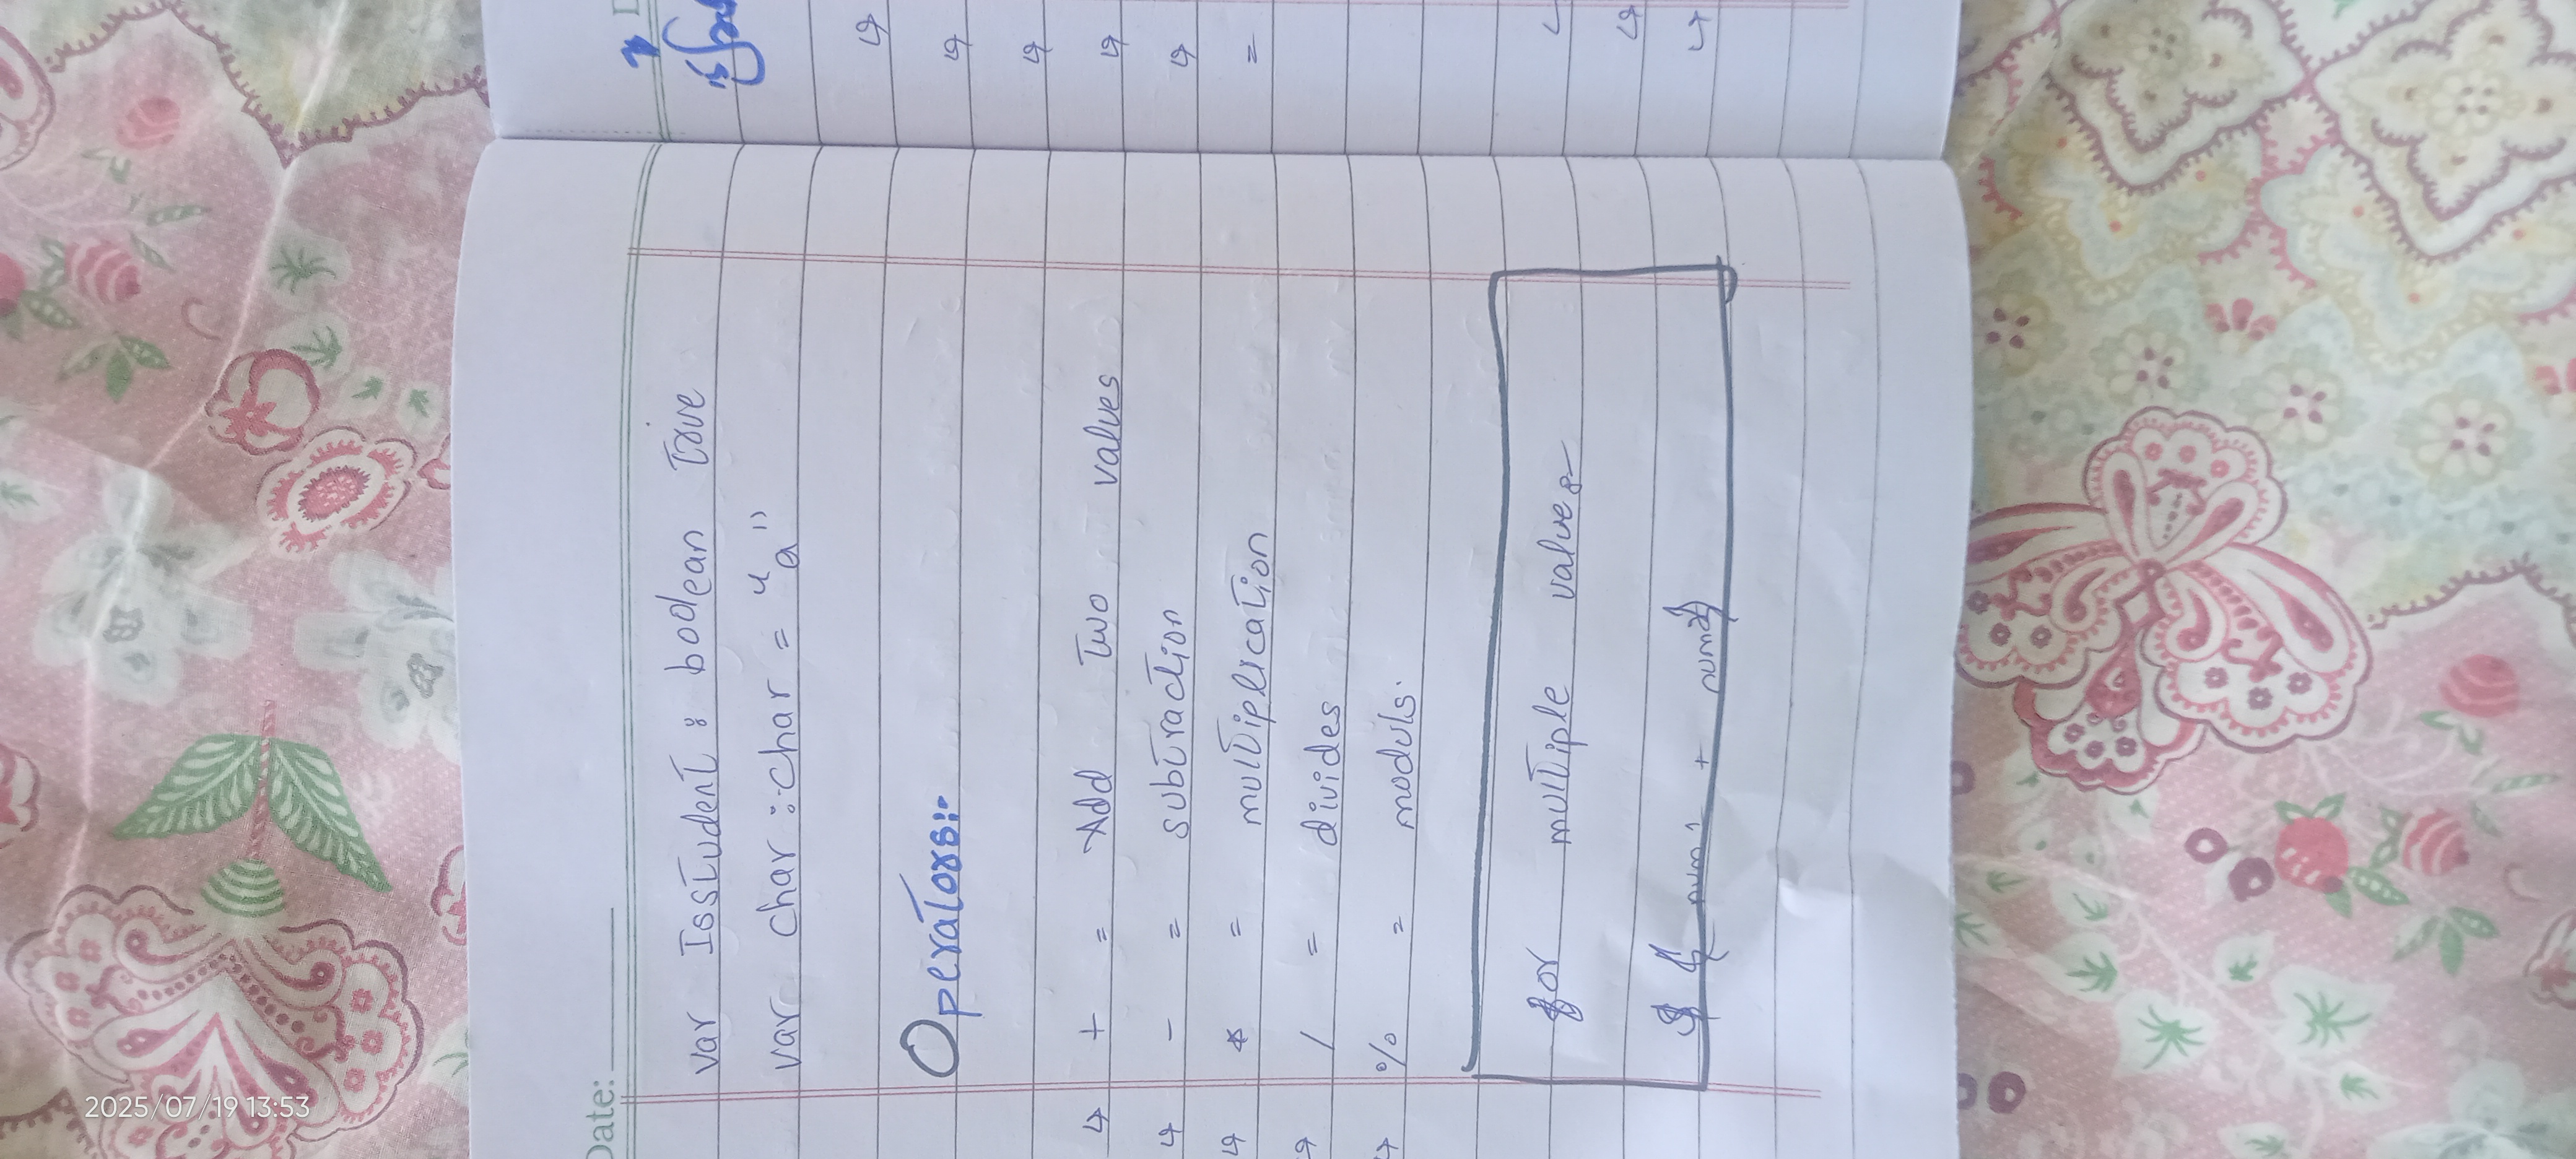 2025/07/19 13:53
Date:
var Isstudent : boolean true
var char : char = "a"
Operators:-
↳ + = Add Two values
↳ - = subtraction
↳ * = multiplication
↳ / = divides
↳ % = moduls.
for multiple values
$ { num1 + num2}